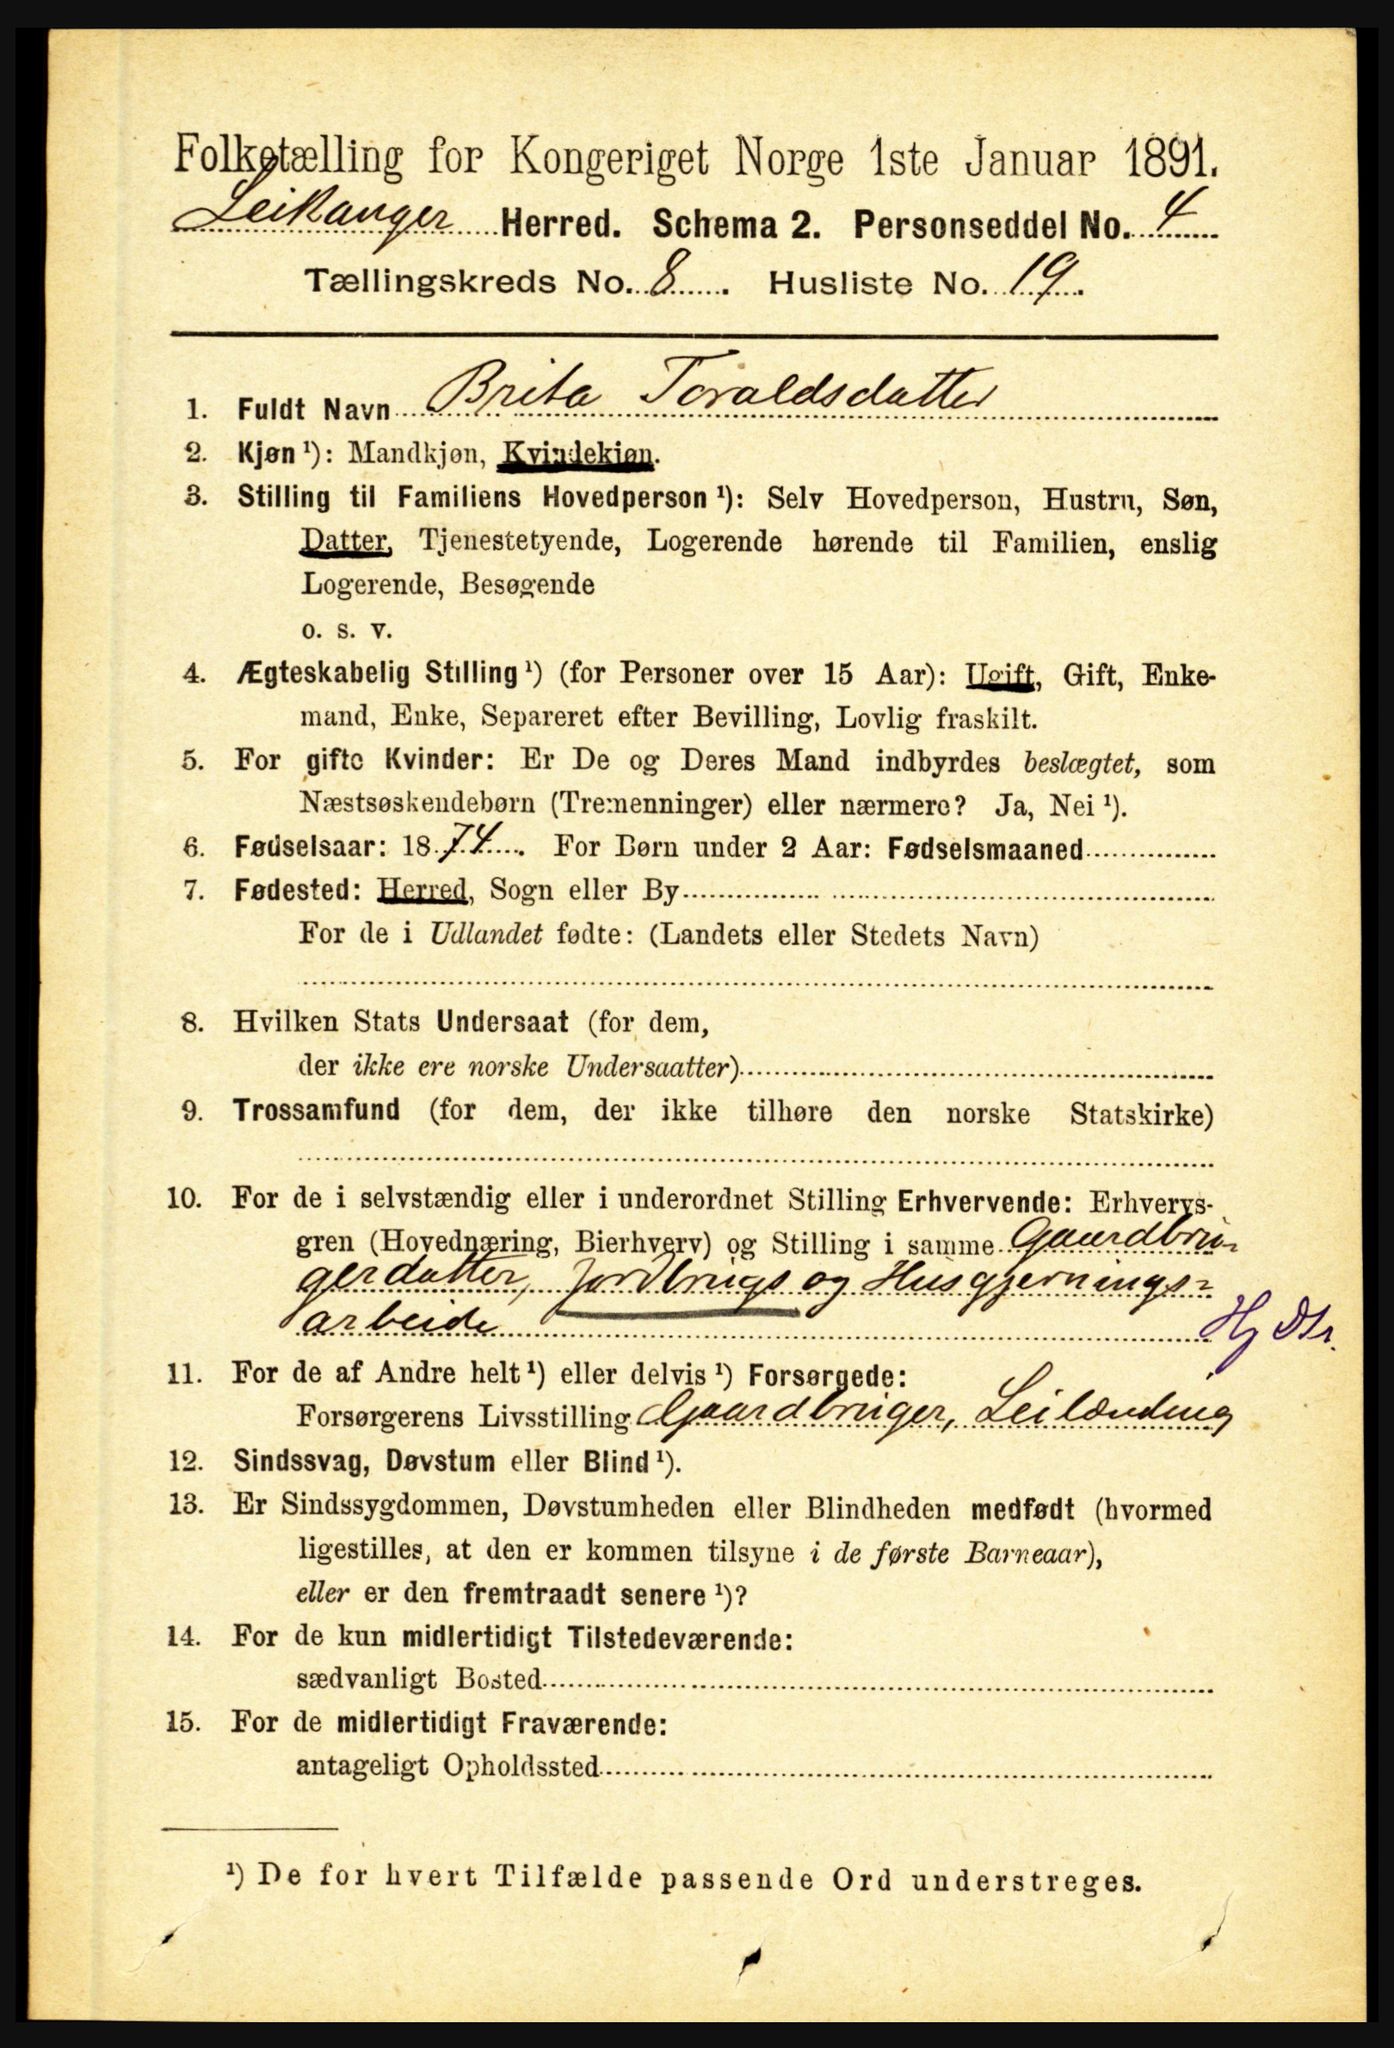 Folketælling for Kongeriget Norge 1ste Januar 1891.
Leikanger Herred. Schema 2. Personseddel No. 4
Tællingskreds No. 8. Husliste No. 19.
1. Fuldt Navn Brita Toraldsdatter
2. Kjøn ¹): Mandkjøn, Kvindekjøn.
3. Stilling til Familiens Hovedperson ¹): Selv Hovedperson, Hustru, Søn,
Datter, Tjenestetyende, Logerende hørende til Familien, enslig
Logerende, Besøgende
o. s. v.
4. Ægteskabelig Stilling ¹) (for Personer over 15 Aar): Ugift, Gift, Enke-
mand, Enke, Separeret efter Bevilling, Lovlig fraskilt.
5. For gifte Kvinder: Er De og Deres Mand indbyrdes beslægtet, som
Næstsøskendebørn (Tremenninger) eller nærmere? Ja, Nei ¹).
6. Fødselsaar: 1874. For Børn under 2 Aar: Fødselsmaaned
7. Fødested: Herred, Sogn eller By
For de i Udlandet fødte: (Landets eller Stedets Navn)
8. Hvilken Stats Undersaat (for dem,
der ikke ere norske Undersaatter)
9. Trossamfund (for dem, der ikke tilhøre den norske Statskirke)
10. For de i selvstændig eller i underordnet Stilling Erhvervende: Erhvervs-
gren (Hovednæring, Bierhverv) og Stilling i samme Gaardbru-
gerdatter, Jordbrugs og Husgjernings=
arbeide Hj Dtr.
11. For de af Andre helt ¹) eller delvis ¹) Forsørgede:
Forsørgerens Livsstilling Gaardbruger, Leilænding
12. Sindssvag, Døvstum eller Blind ¹).
13. Er Sindssygdommen, Døvstumheden eller Blindheden medfødt (hvormed
ligestilles, at den er kommen tilsyne i de første Barneaar),
eller er den fremtraadt senere ¹)?
14. For de kun midlertidigt Tilstedeværende:
sædvanligt Bosted
15. For de midlertidigt Fraværende:
antageligt Opholdssted
¹) De for hvert Tilfælde passende Ord understreges.